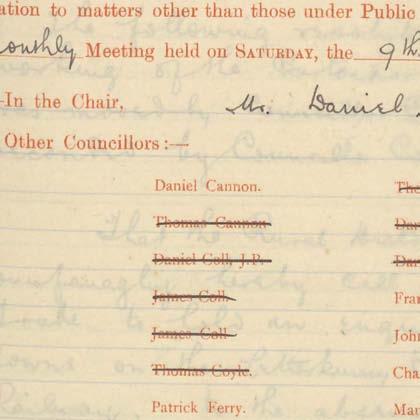 ation to matters other than those under Public
onthly Meeting held on SATURDAY, the 9th
—In the Chair, Mr. Daniel
Other Councillors:—
Daniel Cannon.
Thomas Cannon Da
Daniel Coll, J.P. Da
James Coll. Fra
James Coll Joh
Thomas Coyle. Cha
Patrick Ferry. Mar